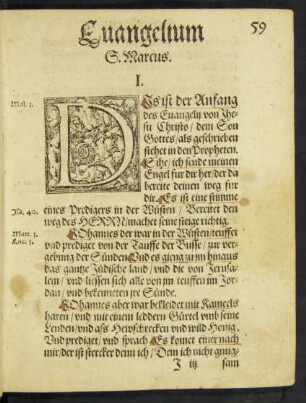 59
Euangelium
S. Marcus.
I.
Mal. 3.
DIs ist der Anfang
des Euangelij von Jhe-
su Christo / dem Son
Gottes / als geschrieben
stehet in den Propheten.
Sihe / ich sende meinen
Engel für dir her / der da
bereite deinen weg für
dir. Es ist eine stimme
Isa. 40.
eines Predigers in der Wüsten / Bereitet den
weg des HERRN / machet seine steige richtig.
Matt. 3.
Luc. 3.
JOhannes der war in der Wüsten / teuffet
vnd prediget von der Tauffe der Busse / zur ver-
gebung der Sünden. Vnd es gieng zu jm hinaus
das gantze Jüdische land / vnd die von Jerusa-
lem / vnd liessen sich alle von jm teuffen im Jor-
dan / vnd bekenneten jre Sünde.
JOhannes aber war bekleidet mit Kameels
haren / vnd mit einem leddern Gürtel vmb seine
Lenden / vnd ass Hewschrecken vnd wild Honig.
Vnd prediget / vnd sprach / Es kompt einer nach
mir / der ist stercker denn ich / Dem ich nicht gnug-
J iij
sam